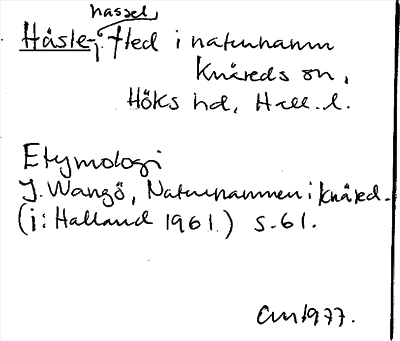 hassel,
Håsle-, fled i naturnamn
Knäreds sn,
Höks hd, Hall. l.
Etymologi
J. Wangö, Naturnamnen i Knäred.
(i: Halland 1961.) s. 61.
1977.